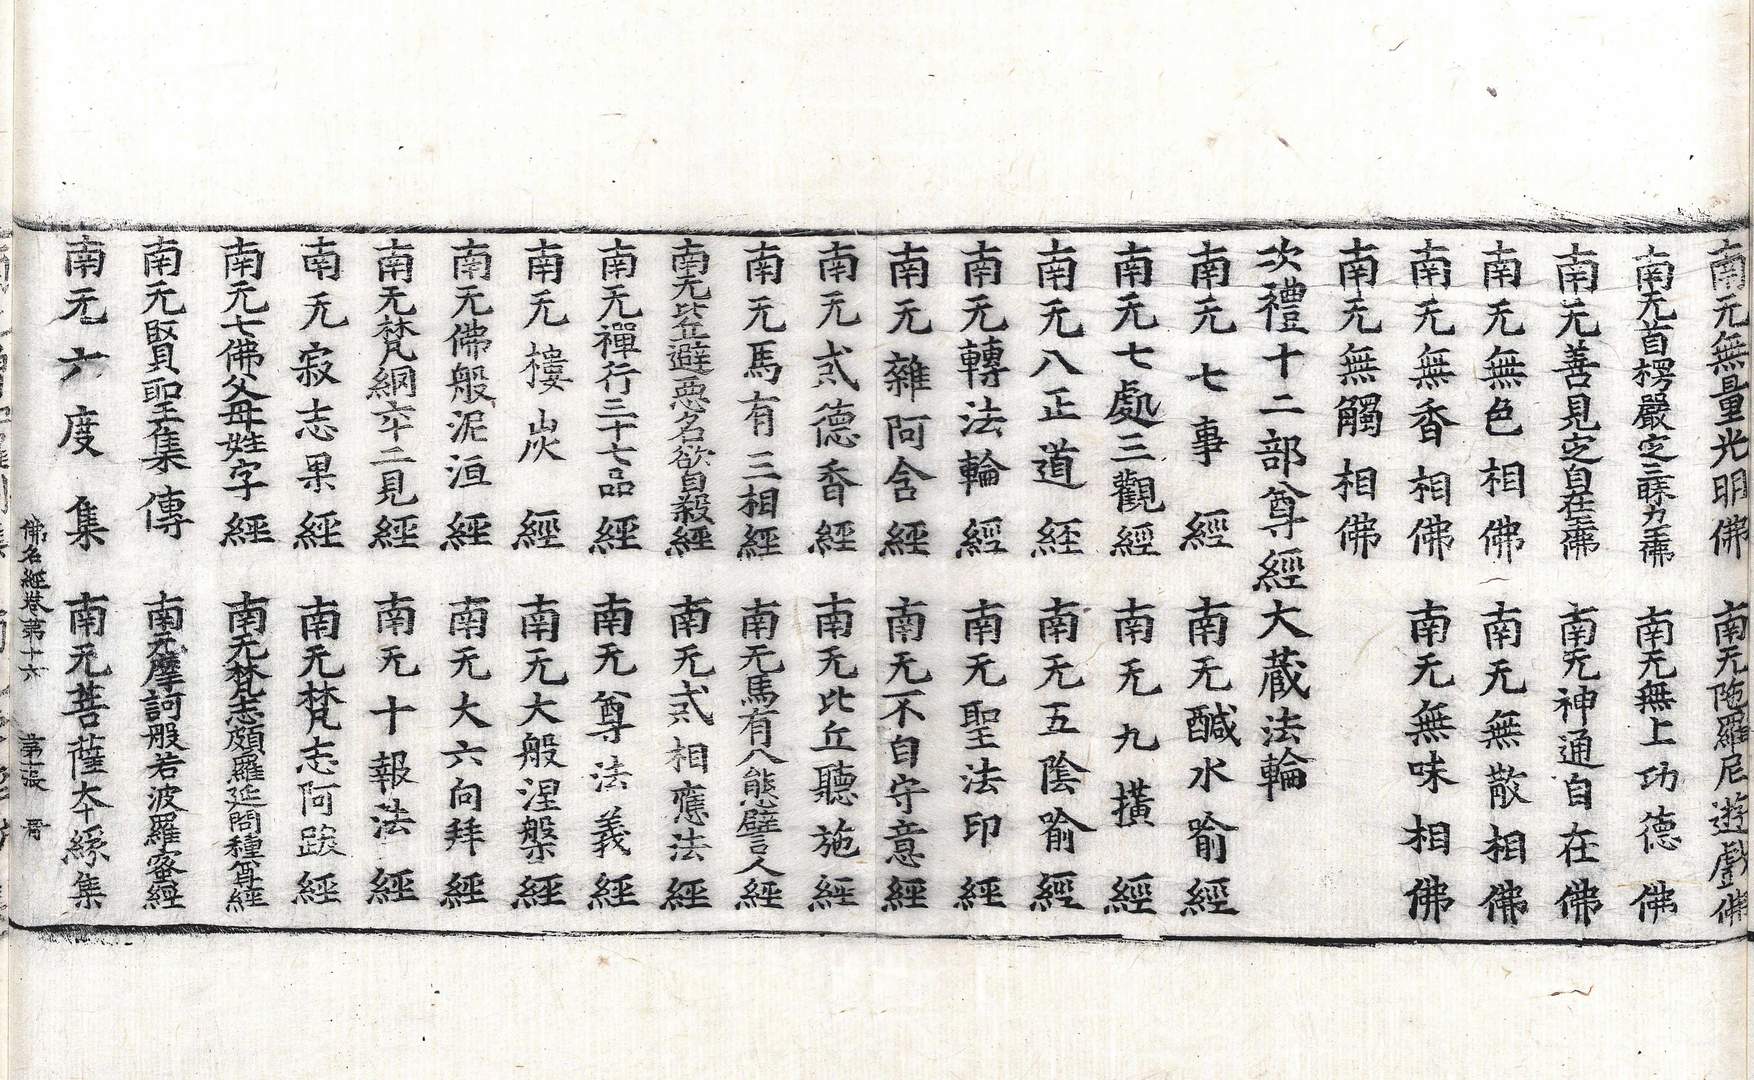 南无無量光明佛　南无陁羅尼遊戲佛
南无首楞嚴定三昧力王佛　南无無上功德佛
南无善見定自在王佛　南无神通自在佛
南无無色相佛　南无無散相佛
南无無香相佛　南无無味相佛
南无無觸相佛
次禮十二部尊經大藏法輪
南无七事經　南无醎水喻經
南无七處三觀經　南无九撗經
南无八正道經　南无五陰喻經
南无轉法輪經　南无聖法印經
南无雜阿含經　南无不自守意經
南无貳德香經　南无比丘聽施經
南无馬有三相經　南无馬有八態譬人經
南无比丘避惡名欲自殺經　南无貳相應法經
南无禪行三十七品經　南无尊法義經
南无樓炭經　南无大般涅槃經
南无佛般泥洹經　南无大六向拜經
南无梵網六十二見經　南无十報法經
南无寂志果經　南无梵志阿跋經
南无七佛父母姓字經　南无梵志頗羅延問種尊經
南无賢聖集傳　南无摩訶般若波羅蜜經
南无六度集　南无菩薩本緣集
佛名經卷第十六　第十一張